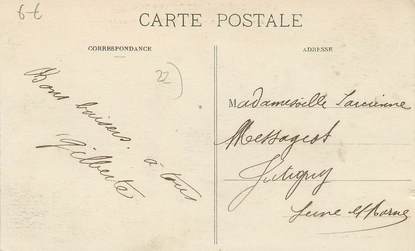 6€
CARTE POSTALE
CORRESPONDANCE
ADRESSE
22)
Bons baisers. à tous
Gilberte
Mademoiselle Lucienne
Messageot
Jutigny
Seine et Marne